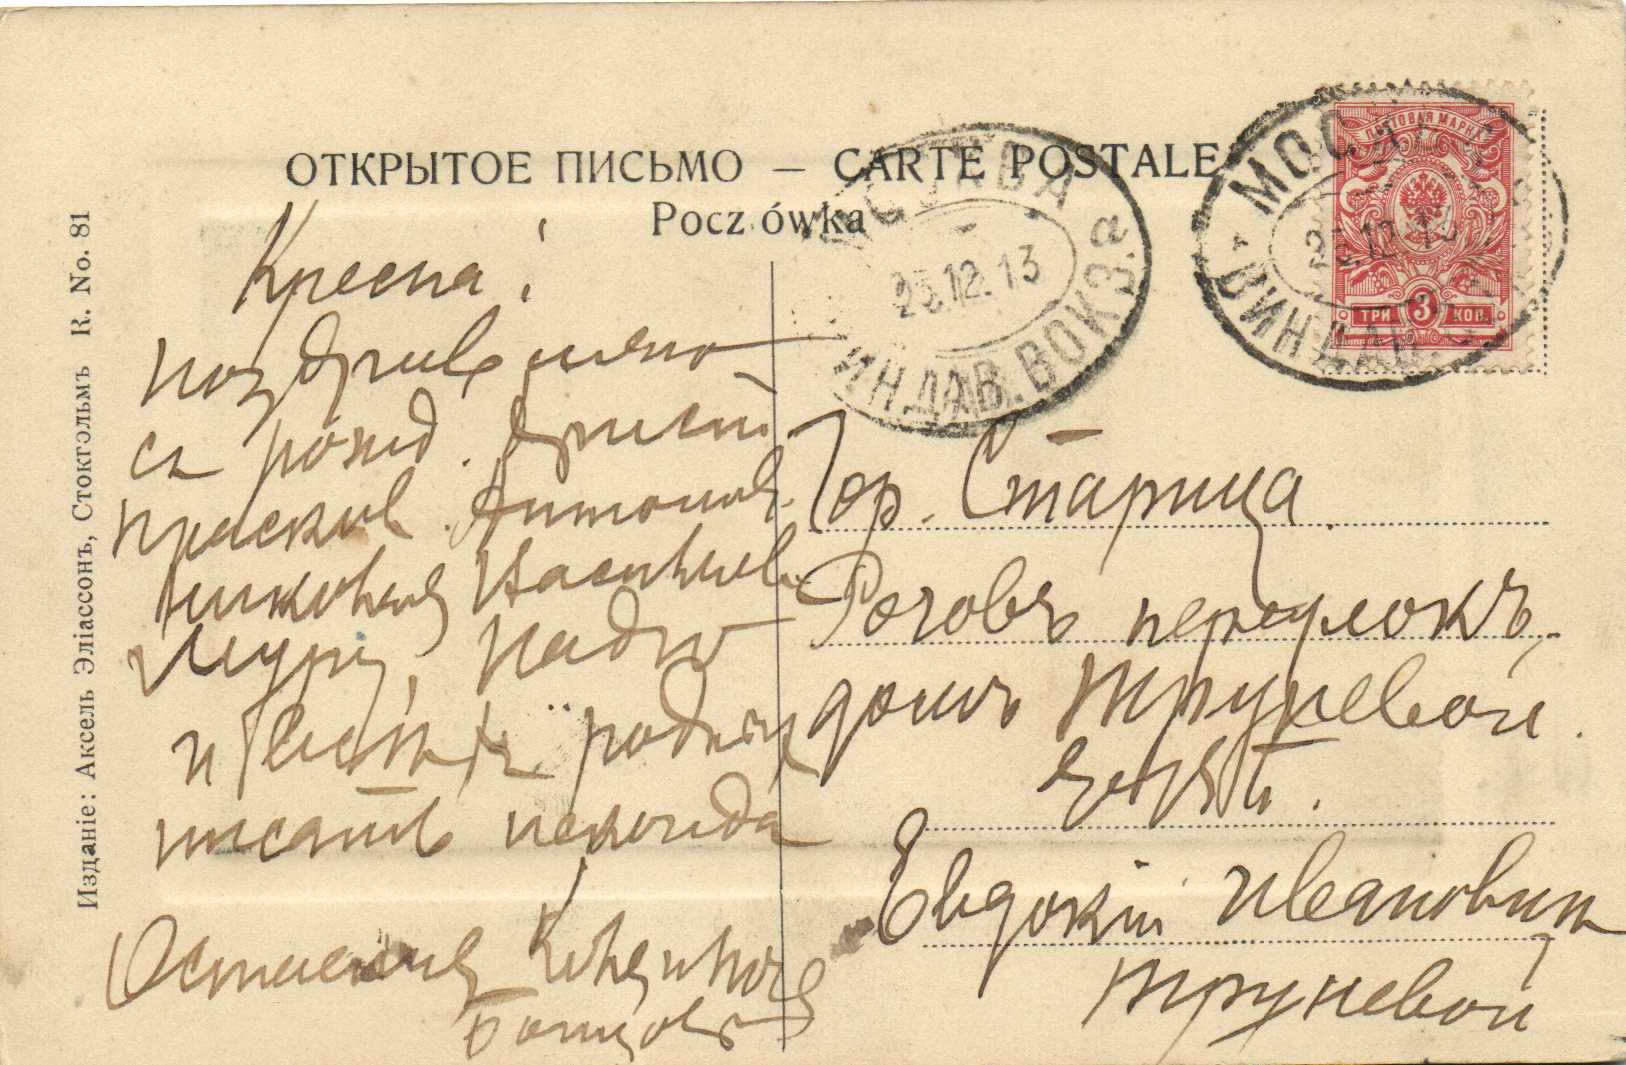 ОТКРЫТОЕ ПИСЬМО — CARTE POSTALE
Pocz ówka
Изданіе: Аксель Эліассонъ, Стокгэльмъ R. No. 81
МОСКВА
23.12.13
ВИНДАВ. ВОКЗ. а
МОСКВА
ВИНДАВ.
ПОЧТОВАЯ МАРКА
ТРИ 3 КОП.
Кресна!
поздравляю
съ рожд. Христ
Прасков. Антонов.
Васильев
Шуру, Надю
и родных
писать некогда
Остаемся
Гор. Старица.
Рогов переулокъ,
домъ Труневой.
Евдокіи Ивановни
Труневой